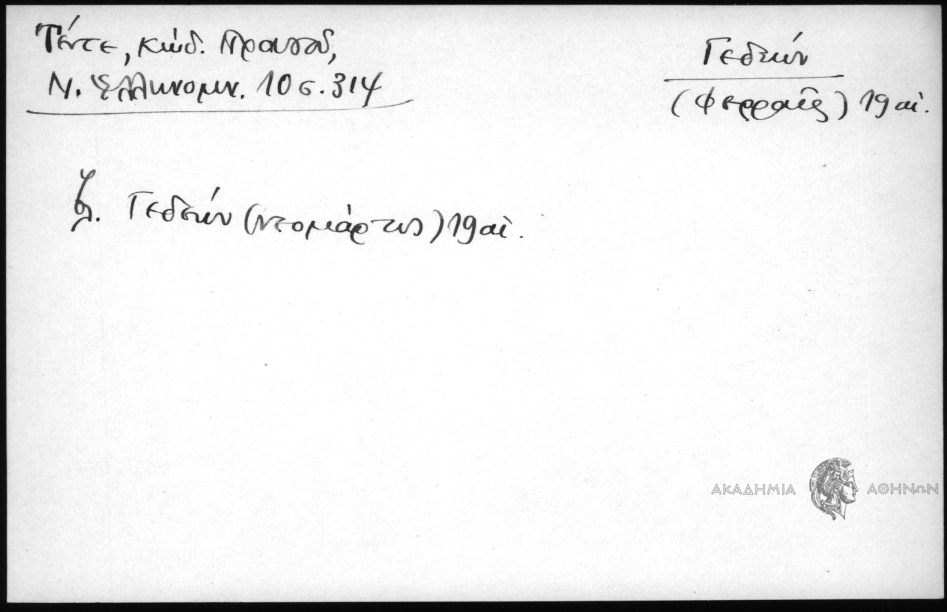 Τέντε, κώδ.
Ν. Ἑλληνομν. 10 σ. 314
Γεδεών
(Φερραῖος) 19 αἰ.
βλ. Γεδεών (νεομάρτυς) 19 αἰ.
ΑΚΑΔΗΜΙΑ ΑΘΗΝΩΝ